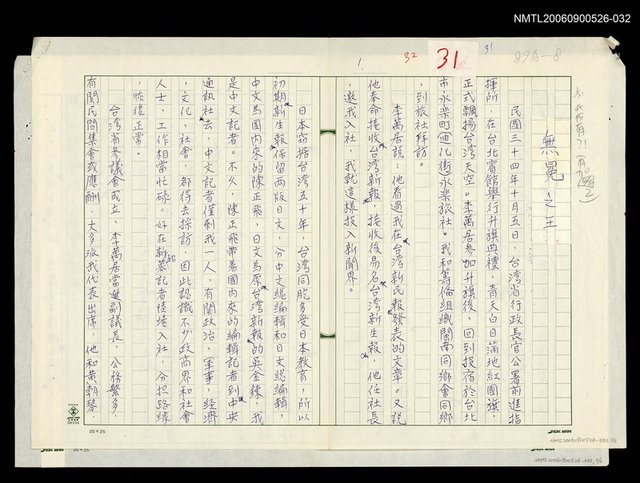 NMTL20060900526-032
32
31
31
898-8
無冕之王
民國三十四年十月五日,台湾省行政長官公署前進指
揮所,在台北賓館舉行升旗典禮,青天白日滿地紅國旗,
正式飄揚台湾天空。李萬居參加升旗後,回到投宿於台北
市永樂町迪化街永樂旅社。我和籌備組織閩南同鄉會同鄉
,到旅社拜訪。
李萬居談:他看過我在台湾新民報發表的文章。又說
他奉命接收台湾新報,接收後易名台湾新生報,他任社長
,邀我入社,我就這樣投入新聞界。
日本窃據台湾五十年,台湾同胞多受日本教育,所以
初期新生報保留兩版日文,分中文總編輯和日文總編輯,
中文為國內來的陳正飛,日文為原台湾新報的吳金鍊,我
是中文記者。不久,陳正飛帶着國內來的編輯記者到中央
通訊社去,中文記者僅剩我一人,有關政治、軍事、經濟
、文化、社會,都得去採訪,因此認識不少政商界和社會
人士,工作相當忙碌,好在新招募記者陸續入社,分担路線
,恢復正常。
台湾省參議會成立,李萬居當選副議長,公務繁多,
有關民間集會或應酬,大多派我代表出席,他和黃朝琴
20×25
NMTL20060900526-032, 1/2
20×25
NMTL20060900526-032, 2/2